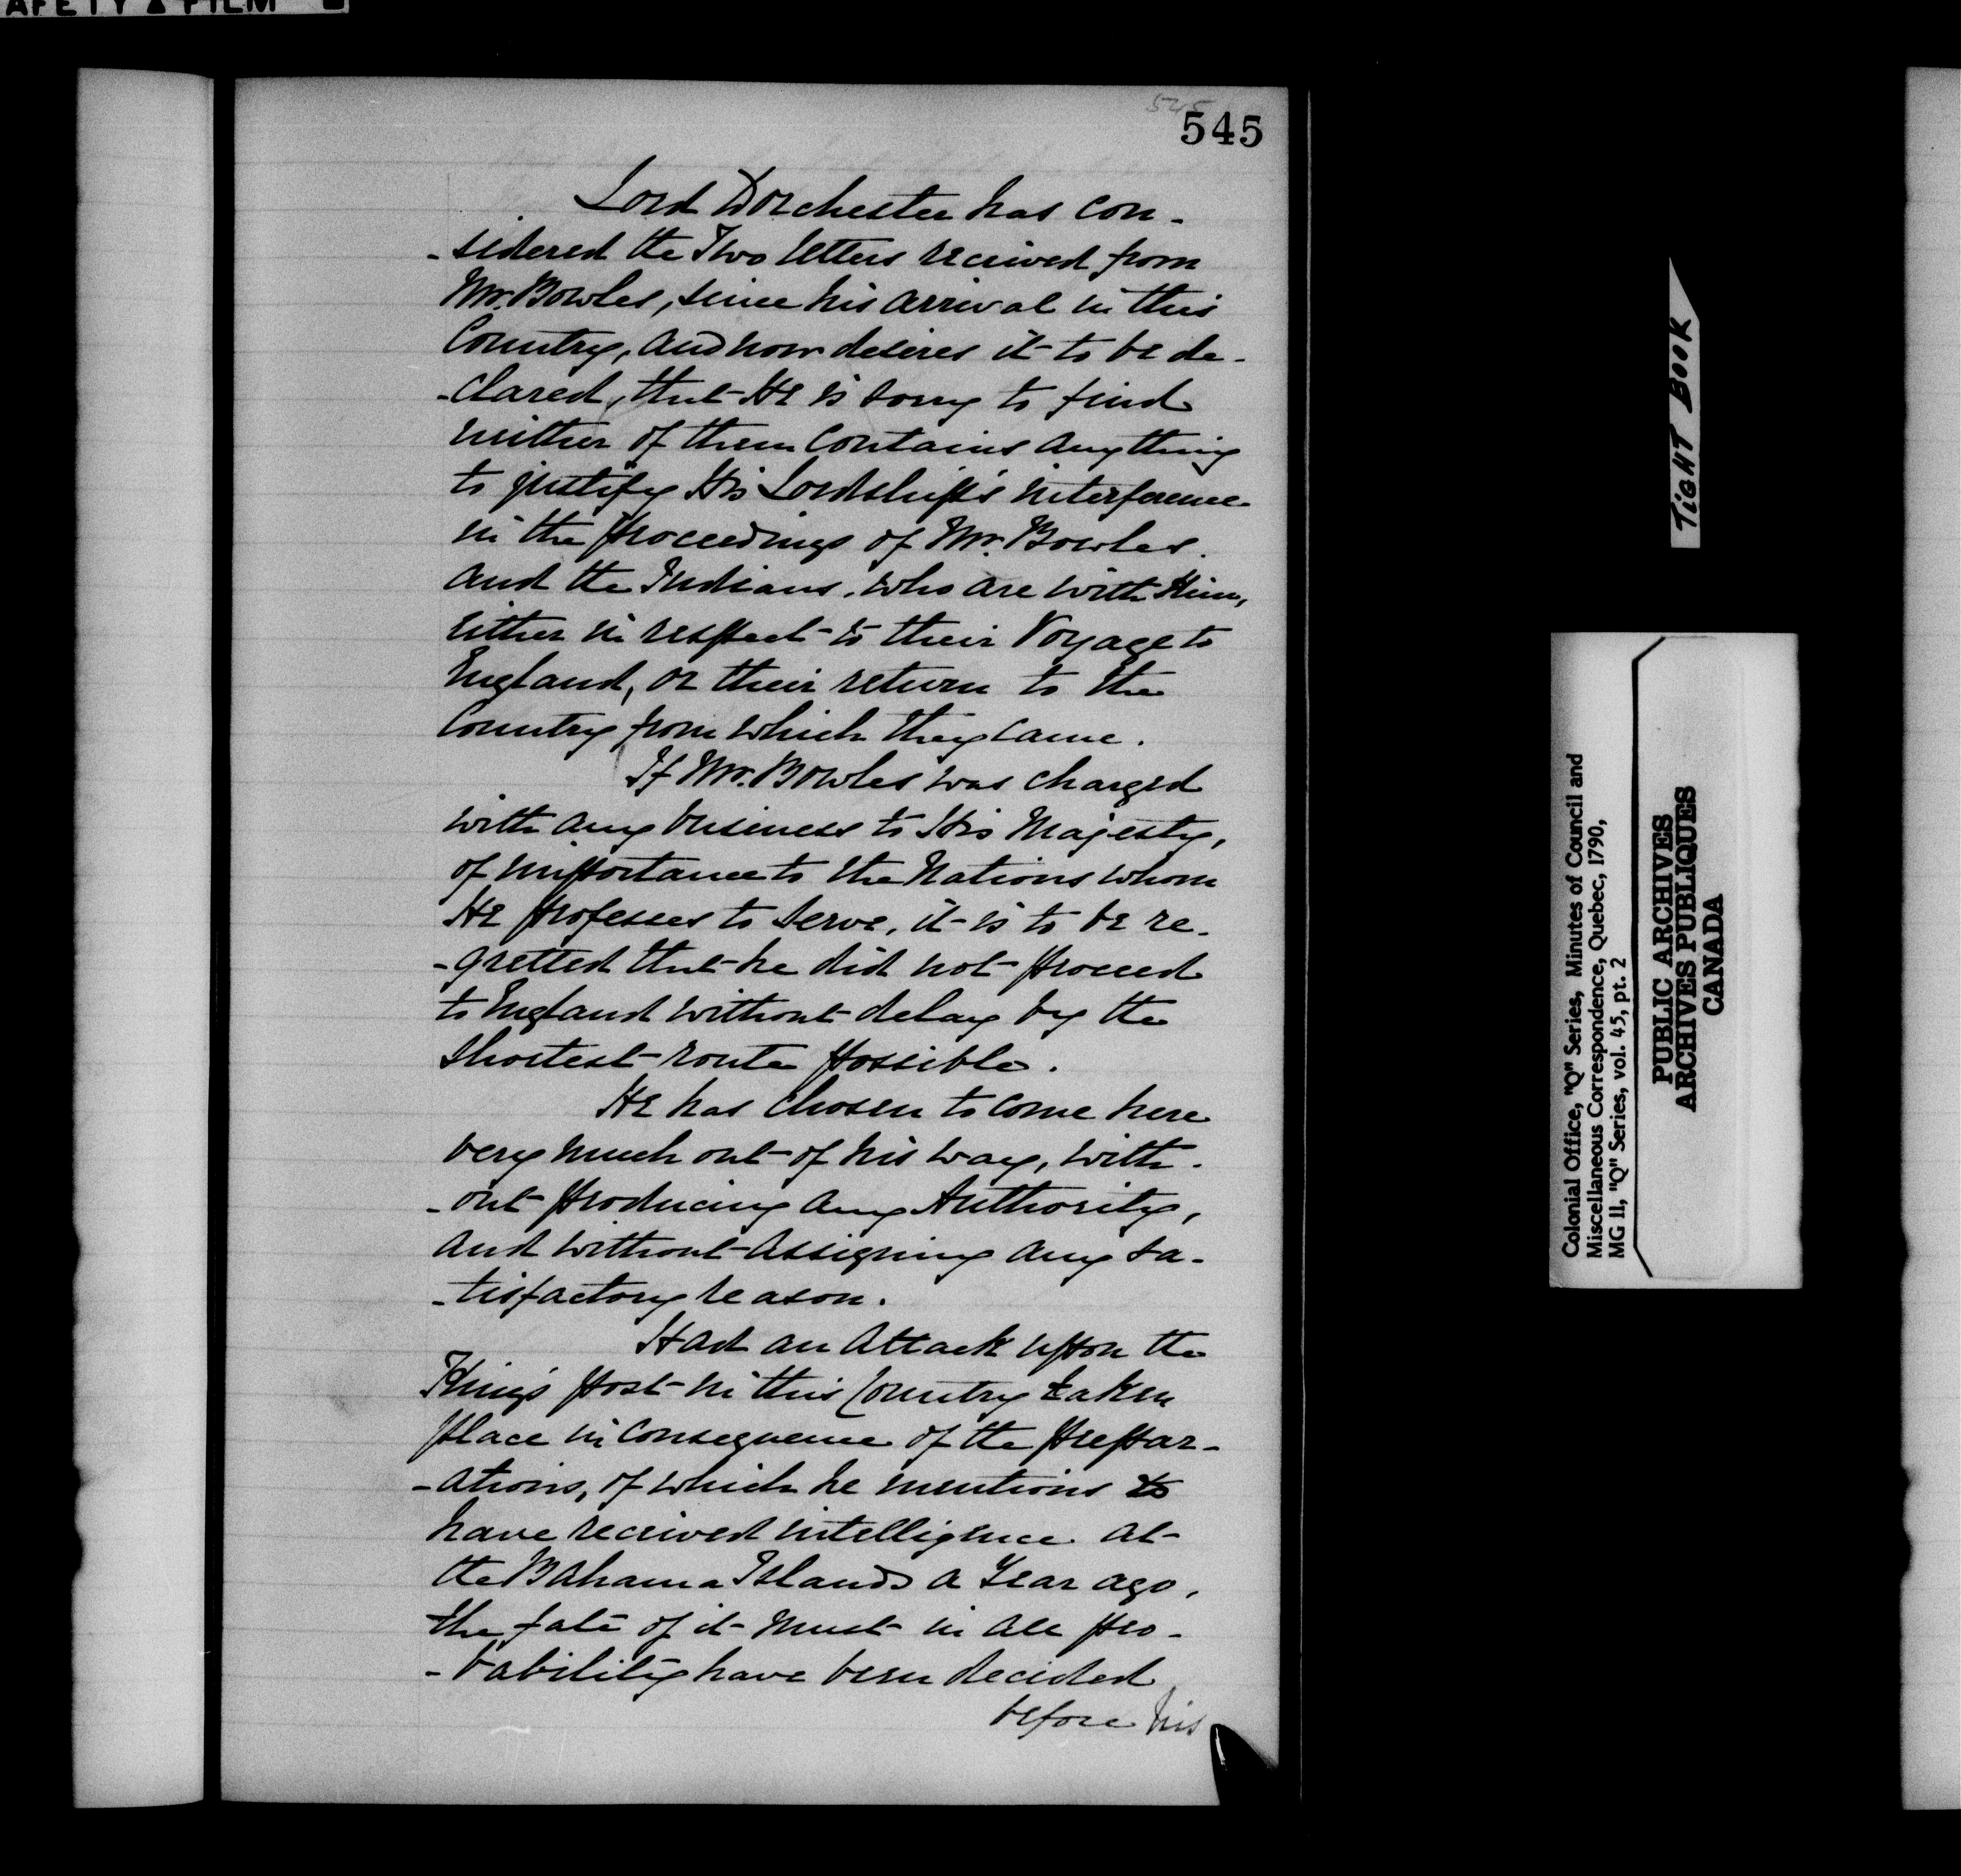 AFETY ▲ FILM
545
545
Lord Dorchester has con-
-sidered the Two letters received from
Mr. Bowles, since his arrival in this
Country, and now desires it to be de-
-clared, that He is sorry to find
neither of them contains anything
to justify His Lordship's interference
in the proceedings of Mr. Bowles.
and the Indians, who are with Him,
either in respect to their Voyage to
England, or their return to the
Country from which they came.
If Mr. Bowles was charged
with any business to His Majesty,
of importance to the Nations whom
He professes to serve, it is to be re-
-gretted that he did not proceed
to England without delay by the
shortest route possible.
He has chosen to come here
very much out of his way, with-
-out producing any Authority,
and without assigning any sa-
-tisfactory reason.
Had an Attack upon the
King's post in this Country taken
place in consequence of the prepar-
-ations, of which he mentions to
have received intelligence at
the Bahama Islands a Year ago,
the fate of it must in all pro-
-bability have been decided
before his
TIGHT BOOK
Colonial Office, "Q" Series, Minutes of Council and
Miscellaneous Correspondence, Quebec, 1790,
MG 11, "Q" Series, vol. 45, pt. 2
PUBLIC ARCHIVES
ARCHIVES PUBLIQUES
CANADA